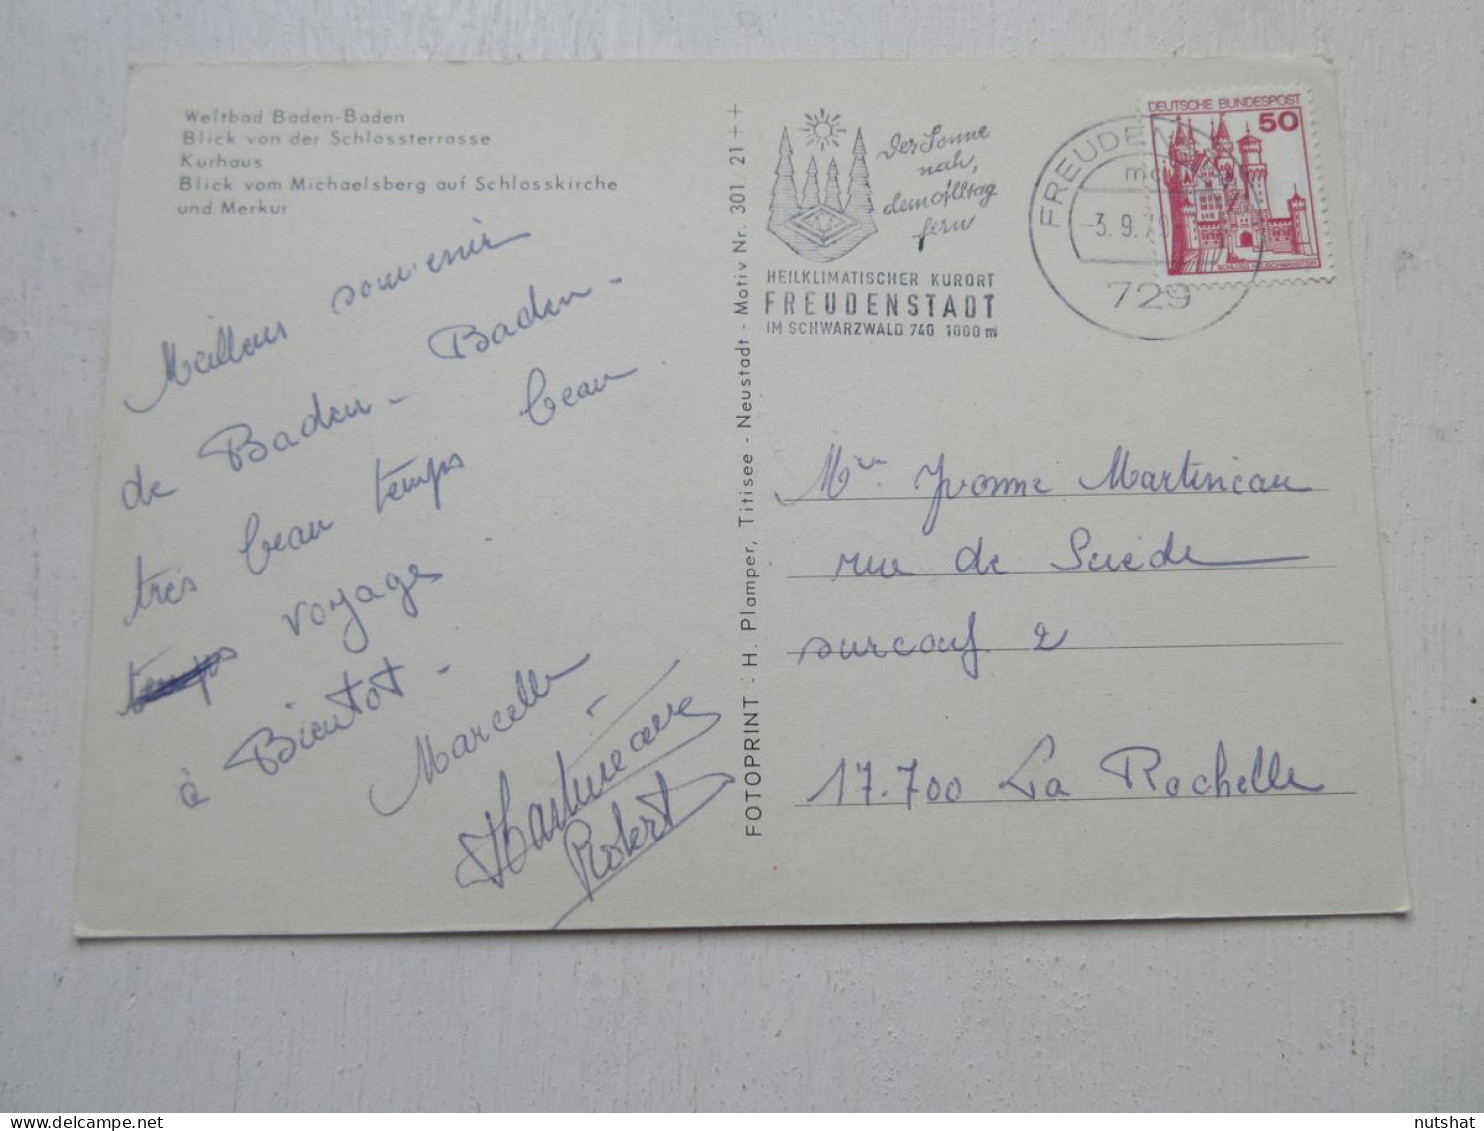 Weltbad Baden-Baden
Blick von der Schlossterrasse
Kurhaus
Blick vom Michaelsberg auf Schlosskirche
und Merkur
Meilleur souvenir
de Baden-Baden-
très beau temps beau
temps voyage
à Bientot-
Marcelle
Martineau
Robert
FOTOPRINT - H. Plamper, Titisee - Neustadt - Motiv Nr. 301/21 ++
Der Sonne
nah,
dem Alltag
fern
HEILKLIMATISCHER KURORT
FREUDENSTADT
IM SCHWARZWALD 740 1000 m
FREUDEN
-3.9.7
729
DEUTSCHE BUNDESPOST
50
SCHLOSS NEUSCHWANSTEIN
Yvonne Martineau
rue de Suède
surcouf 2
17.700 La Rochelle
nutshat